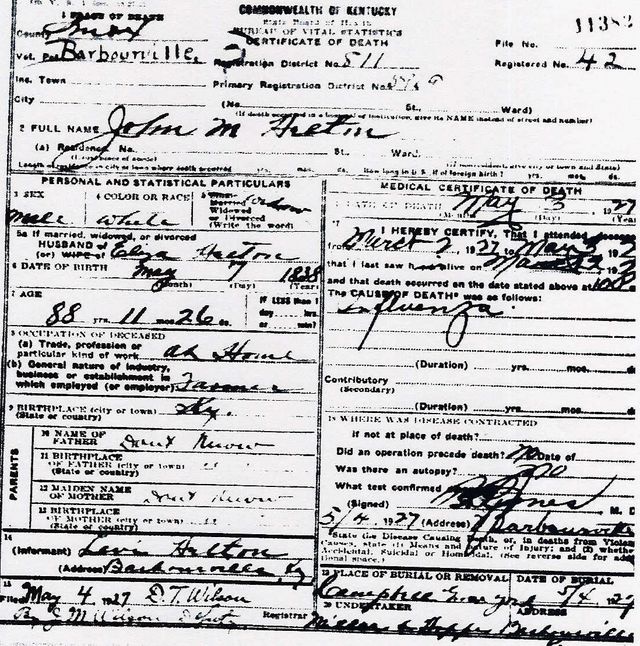 COMMONWEALTH OF KENTUCKY
State Board of Health
BUREAU OF VITAL STATISTICS
CERTIFICATE OF DEATH
1 PLACE OF DEATH
County Knox
Vot. Pct. Barbourville
Inc. Town
City
Registration District No. 511
Primary Registration District No.
(No. St., Ward)
(If death occurred in a hospital or institution, give its NAME instead of street and number)
File No. 11382
Registered No. 42
2 FULL NAME John M Helton
(a) Residence. No. St. Ward.
(Usual place of abode) (If nonresident give city or town and State)
Length of residence in city or town where death occurred yrs. mos. ds. How long in U. S., if of foreign birth? yrs. mos. ds.
PERSONAL AND STATISTICAL PARTICULARS
3 SEX Male
4 COLOR OR RACE White
5 Single Married Widowed or Divorced (Write the word)
5a If married, widowed, or divorced
HUSBAND of (or) WIFE of Eliza Helton
6 DATE OF BIRTH May 7 1838
(Month) (Day) (Year)
7 AGE 88 yrs. 11 mos. 26 ds.
IF LESS than 1 day .... hrs. or .... min?
8 OCCUPATION OF DECEASED
(a) Trade, profession or particular kind of work at Home
(b) General nature of industry, business or establishment in which employed (or employer) Farmer
9 BIRTHPLACE (city or town) Ky.
(State or country)
PARENTS
10 NAME OF FATHER Dont Know
11 BIRTHPLACE OF FATHER (city or town) " "
(State or country)
12 MAIDEN NAME OF MOTHER Dont Know
13 BIRTHPLACE OF MOTHER (city or town) " "
(State or country)
14
(Informant) Levi Helton
(Address) Barbourville, Ky
15
Filed May 4 1927 D. T. Wilson
By J M Wilson Deputy Registrar
MEDICAL CERTIFICATE OF DEATH
DATE OF DEATH May 3 1927
(Month) (Day) (Year)
17 I HEREBY CERTIFY, That I attended deceased
from March 2, 1927 to May 2, 192
that I last saw h alive on 2, 192
and that death occurred on the date stated above at
The CAUSE OF DEATH* was as follows:
Influenza
(Duration) yrs. mos. ds.
Contributory
(Secondary)
(Duration) yrs. mos. ds.
18 WHERE WAS DISEASE CONTRACTED
if not at place of death?
Did an operation precede death? No Date of
Was there an autopsy? no
What test confirmed
(Signed) Jones M. D.
5/4 1927 (Address) Barbourville
*State the Disease Causing Death, or, in deaths from Violent
Causes, state (1) Means and nature of Injury; and (2) whether
Accidental, Suicidal or Homicidal. (See reverse side for additional space.)
19 PLACE OF BURIAL OR REMOVAL
Campbell Grave Yard
DATE OF BURIAL
5/4 1927
20 UNDERTAKER
ADDRESS
Barbourville